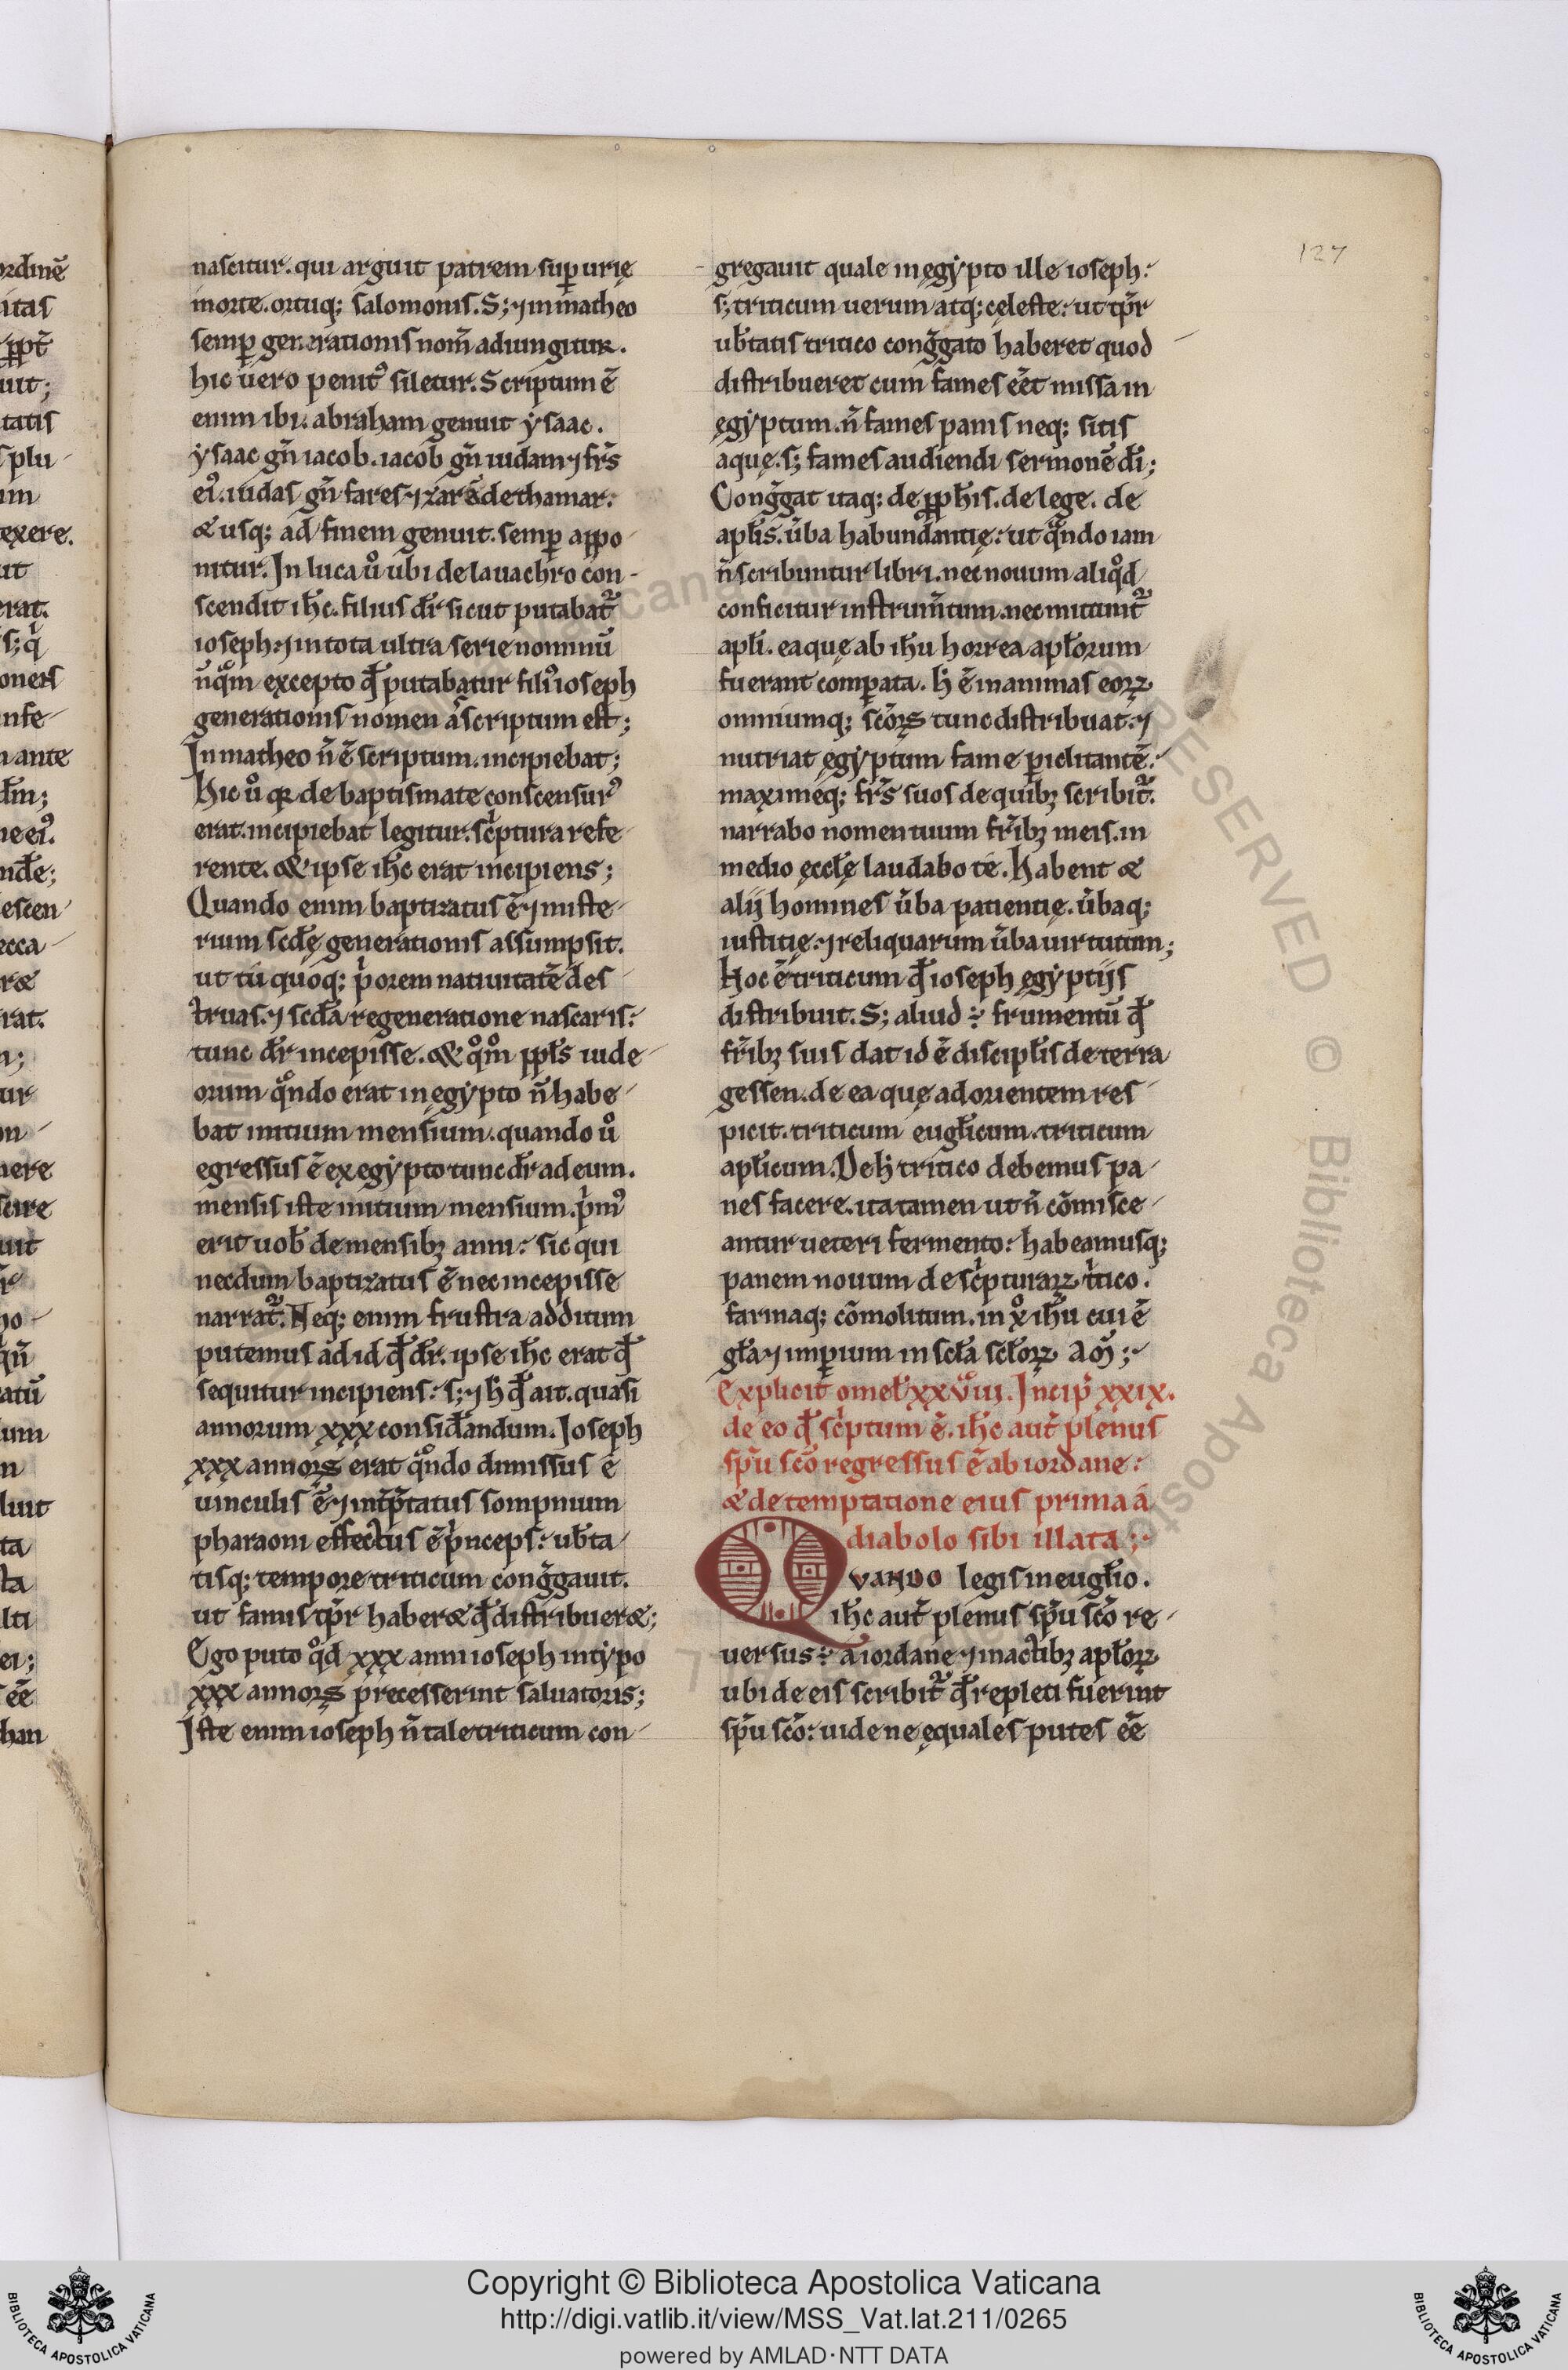 nascitur. qui arguit patrem sup̱ urię
morte. ortuq; salomonis. S; ⁊ in matheo
semp̱ generationis nom̄ adiungitur.
hic uero penit᷒ siletur. Scriptum ē
enim ibi. abraham genuit ẏsaac.
ẏsaac gn̄ iacob. iacob gn̄ iudam ⁊ fr̄s
ei᷒. iudas gn̄ fares ⁊ zarā de thamar.
& usq; ad finem genuit. semp̱ appo-
nitur. In luca ů ubi de lauachro con-
scendit ihc̄. filius dr̄ sicut putabat᷑
ioseph: ⁊ in tota ultra serie nominū
nūqͦm excepto qđ putabatur fili᷒ ioseph
generationis nomen ascriptum est;
In matheo n̄ ē scriptum. incipiebat;
Hic ů qꝛ de baptismate conscensur᷒
erat. incipiebat legitur. sc̍ptura refe-
rente. & ipse ihc̄ erat incipiens;
Quando enim baptizatus ē ⁊ miste-
rium scđę generationis assumpsit.
ut tu quoq; p̍orem natiuitatē des-
truas. ⁊ scđa regeneratione nascaris:
tunc dr̄ incepisse. & qͦm̊ ppłs iude-
orum qͦndo erat in egẏpto n̄ habe-
bat initium mensium. quando ů
egressus ē ex egẏpto tunc dr̄ ad eum.
mensis iste initium mensium. p̍m᷒
erit uob̄ de mensibꝫ anni: sic qui
necdum baptizatus ē nec incepisse
narrat᷑. Neq; enim frustra additum
putemus ad id qđ dr̄. ipse ihc̄ erat qđ
sequitur incipiens: s; ⁊ h̍ qđ ait. quasi
annorum xxx considandum. Ioseph
xxx annoꝝ erat qͦndo dimissus ē
uinculis ē ⁊ int̄p̄tatus sompnium
pharaoni effectus ē p̍nceps: ub̄ta-
tisq; tempore triticum cong̅gauit.
ut famis tp̄r haber& qđ distribuer&;
Ego puto qͦd xxx anni ioseph in tẏpo
xxx annoꝝ precesserint saluatoris;
Iste enim ioseph n̄ tale triticum con-
gregauit quale in ęgẏpto ille ioseph:
s; triticum uerum atq; celeste: ut tp̄r
ub̄tatis tritico cong̅gato haberet quod
distribueret cum fames eēt missa in
ęgẏptum. n̄ fames panis neq; sitis
aquę. sꝫ fames audiendi sermonē dī;
Cong̅gat itaq; de ꝓpħis. de lege. de
apłis. ūba habundantię: ut qͦndo iam
n̄ scribuntur libri. nec nouum aliqͦd
conficitur instrum̄tum. nec mitunt᷑
apłi. ea quę ab ihū horrea apłorum
fuerant comp̱ata. h̍ ē in animas eoꝝ
omniumq; scōꝝ tunc distribuat: ⁊
nutriat ęgẏptum fame p̱iclitantē:
maximeq; fr̄s suos de quibꝫ scribit᷑.
narrabo nomen tuum fr̄ibꝫ meis. in
medio ęcclę laudabo te. Habent &
alij homines ūba patientię. ūbaq;
iustitię: ⁊ reliquarum ūba uirtutum;
Hoc ē triticum qđ ioseph ęgẏptijs
distribuit. S; aliud ÷ frumentū qđ
fr̄ibꝫ suis dat id ē discipłis de terra
gessen. de ea quę ad orientem res-
picit. triticum eugłicum. triticum
apłicum. De h̍ tritico debemus pa-
nes facere. ita tamen ut n̄ cōmisce-
antur ueteri fermento: habeamusq;
panem nouum de sc̍pturaꝝ t̍tico.
farinaq; cōmolitum. in xͦ ihū cui ē
głа ⁊ imp̱ium in scła scłoꝝ Am̄;
Explicit omeł xxuͦiii. Incip̄ xxix.
de eo qđ sc̍ptum ē. ihc̄ aut̄ plenus
sp̄u scō regressus ē ab iordane:
& de temptatione eius prima a
diabolo sibi illata;
QVANDO legis in eugłio.
ihc̄ aut̄ plenus sp̄u scō re-
uersus ÷ a iordane ⁊ in actibꝫ apłoꝝ
ubi de eis scribit᷑ qđ repleti fuerint
sp̄u scō: uide ne ęquales putes eē
127
Copyright © Biblioteca Apostolica Vaticana
http://digi.vatlib.it/view/MSS_Vat.lat.211/0265
powered by AMLAD·NTT DATA
BIBLIOTECA APOSTOLICA VATICANA
BIBLIOTECA APOSTOLICA VATICANA